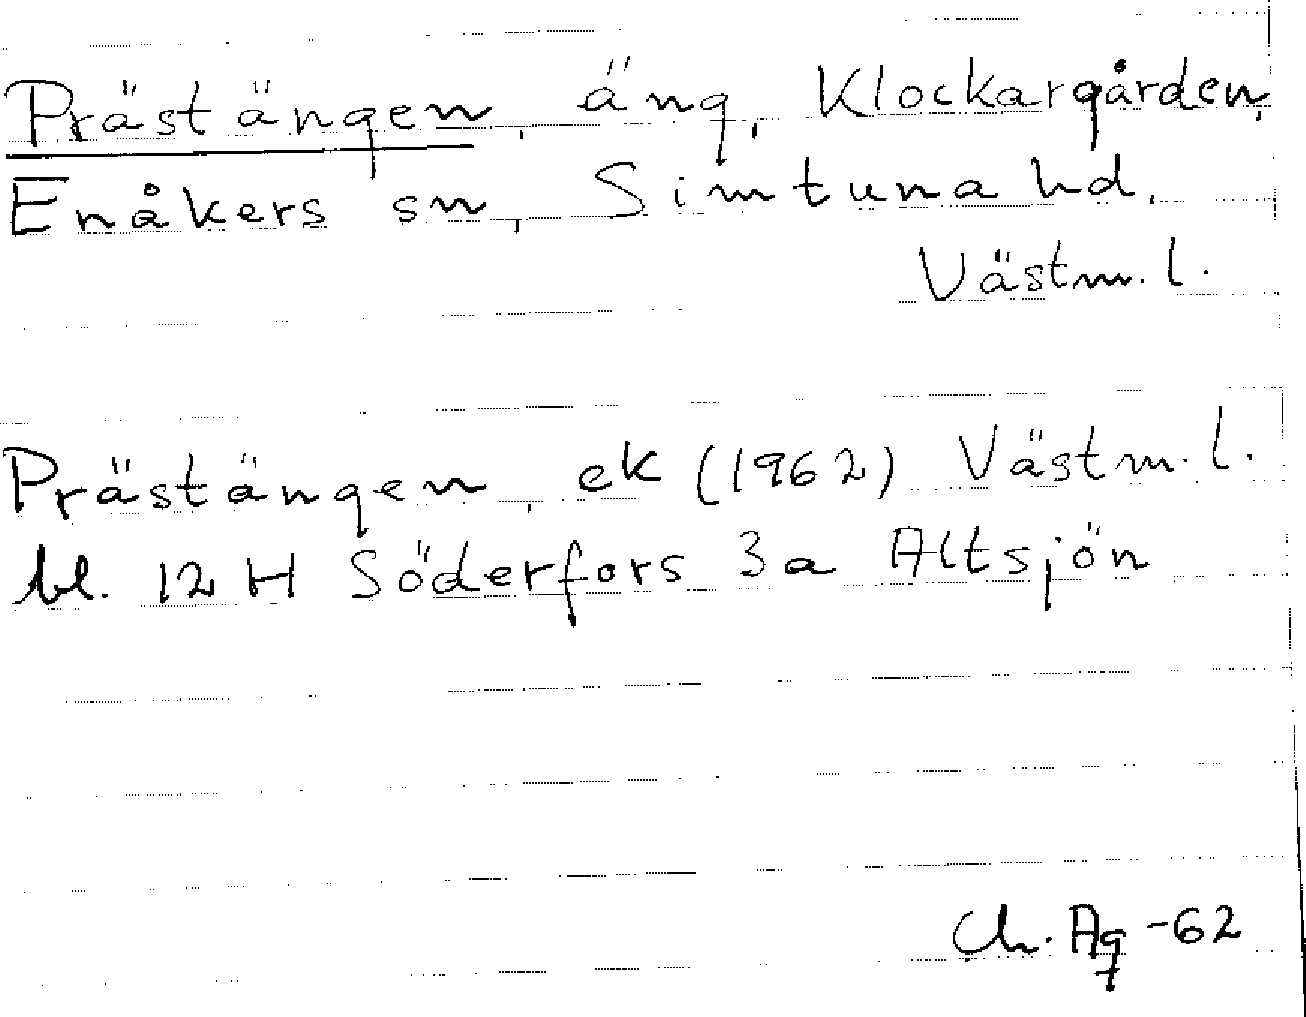 Prästängen, äng, Klockargården,
Enåkers sn, Simtuna hd.
Västm. l.
Prästängen, ek (1962) Västm. l.
bl. 12 H Söderfors 3a Altsjön
Ch. Ag -62